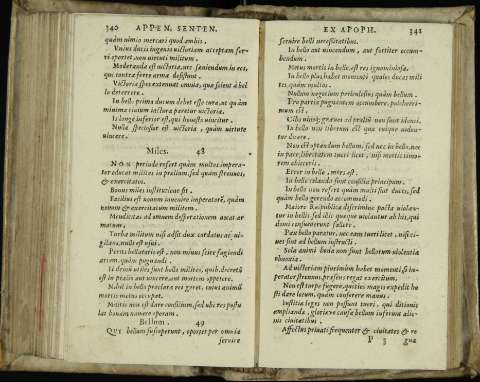 340 APPEN. SENTEN.
quàm nimio mercari quod ambis.
Vnius ducis ingenio victoriam acceptam fer-
ri oportet, non virtuti militum.
Moderanda est victoria, nec sæuiendum in eos,
qui contra ferre arma desistunt.
Victoria spes extenuat omnia, quæ solent à bel-
lo deterrere.
In bello prima ducum debet esse cura, ut quàm
minima ciuium iactura pariatur victoria.
Is longè inferior est, qui honestè vincitur.
Nulla speciosior est victoria, quàm virtute
vincere.
Miles. 48
NON perinde refert quàm multos impera-
tor educat milites in prælium, sed quàm strenuos,
& exercitatos.
Bonus miles institutione fit.
Facilius est bonum inuenire imperatorẽ, quàm
bonum & exercitatum militem.
Mendicitas ad unum desertationem uocat ar
matum.
Turba militum nisi adsit dux cordatus ac ui-
gilans, nulli est usui.
Peritus bellatoris est, non minus scire fugiendi
artem, quàm pugnandi.
Ii demũ utiles sunt bello milites, quib. decretũ
est in prælio aut uincere, aut mortem oppetere.
Nihil in bello præclarè rei geret, cuius animũ
mortis metus occupat.
Militis non est dare consilium, sed ubi res postu
lat bonam nauare operam.
Bellum. 49
QVI bellum suscipunt, oportet per omnia
seruire
EX APOPH. 341
seruire belli necessitatibus.
In bello aut uincendum, aut fortiter occum-
bendum.
Metus mortis in bello, est res ignominiosa.
In bello plus habet momenti quales ducas mili
tes, quàm multos.
Nullum negocium periculosius quàm bellum.
Pro patria pugnantem occumbere, pulcherri-
mum est.
Cibo uinoq́; graues ad præliũ non sunt idonei.
In bello non liberum est quæ cuique uiden-
tur dicere.
Non est optandum bellum, sed nec in bello, nec
in pace, libertatem tueri licet, nisi mortis timo-
rem abiecerit.
Error in bello, mors est.
In bello celanda sunt consilia principum.
In bello non refert quàm multi sint duces, sed
quàm bello gerendo accommodi.
Maiore Reipublicæ discrimine pacta uiolan-
tur in bellis, sed illic quoque uiolantur ab his, qui
domi consueuerunt fallere.
Pax bello paratur, nec eam tueri licet, nisi ci-
ues sint ad bellum instructi.
Sola animi bona non sunt bellorum uiolentiæ
obnoxia.
Ad uictoriam plurimùm habet momenti, si im-
perator strenuus, præsens regat exercitum.
Non est turpe fugere, quoties magis expedit ho
sti dare locum, quàm conserere manus.
Iustitiæ leges non possunt tueri, qui ditionis
ampliandæ, gloriæ ue causa bellum inferunt alie-
nis ciuitatibus.
Affectus priuati frequenter & ciuitates & re
P 3 gna